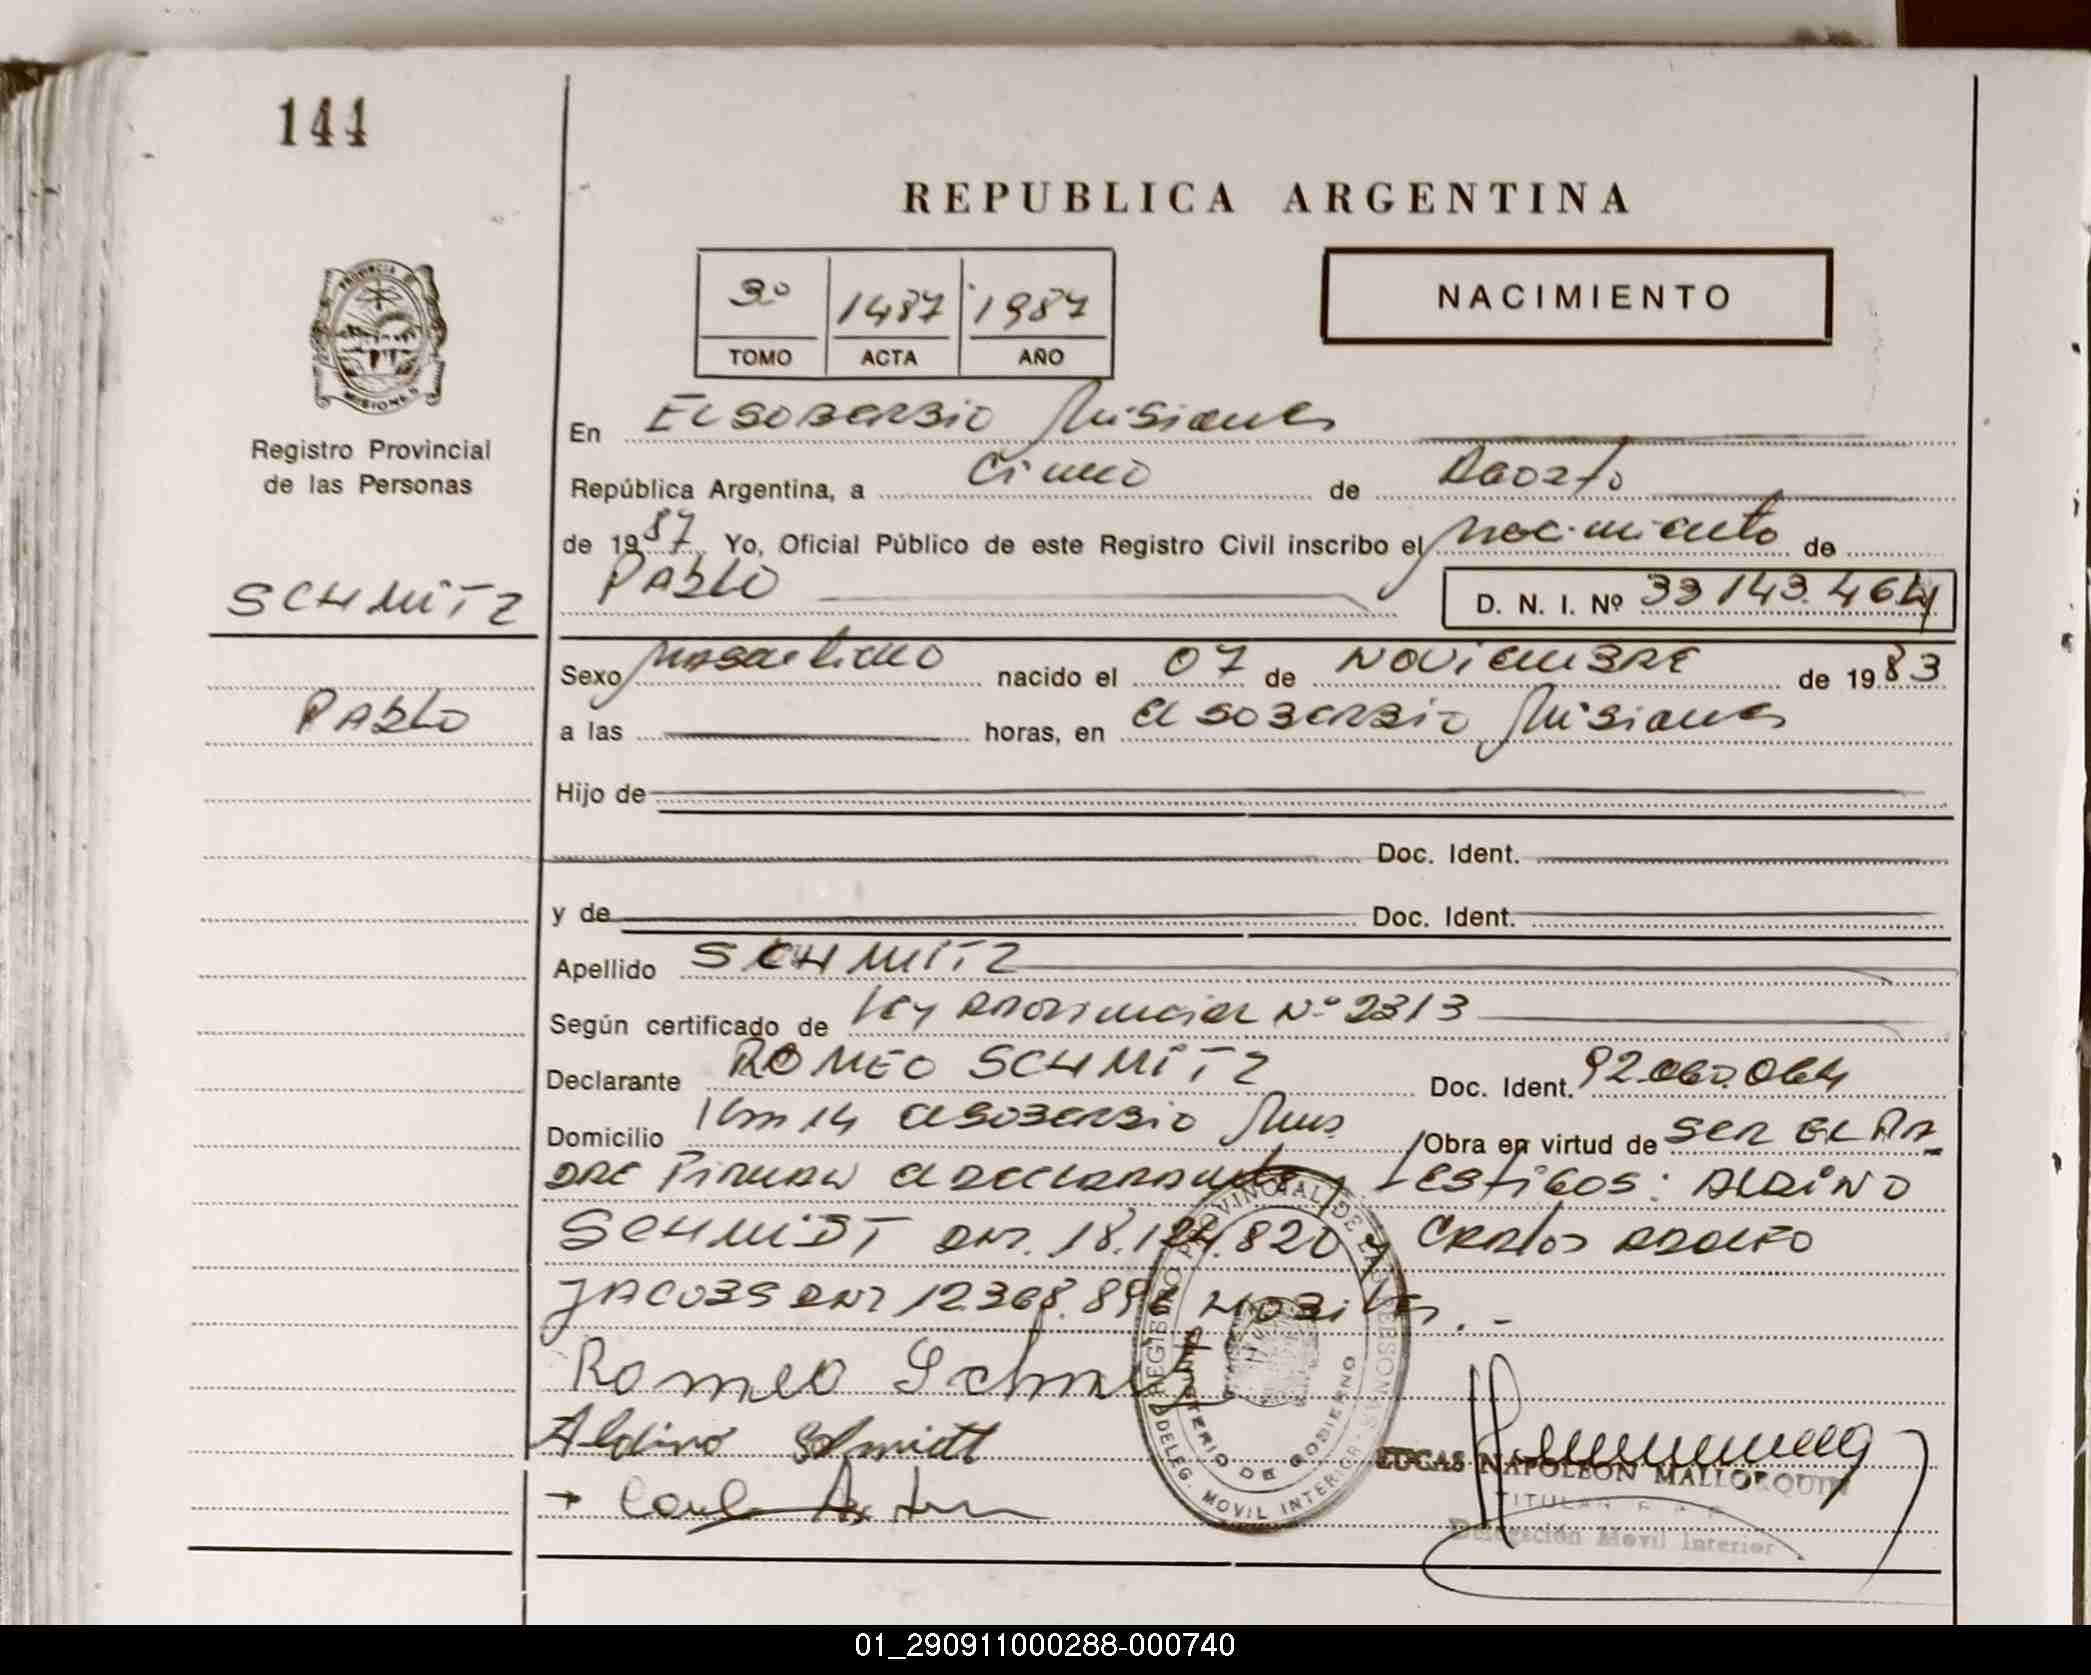 144
REPUBLICA ARGENTINA
3º 1487 1987
TOMO ACTA AÑO
NACIMIENTO
PROVINCIA DE
MISIONES
Registro Provincial
de las Personas
SCHMITZ
PABLO
En El SOBERBIO Misiones
República Argentina, a Cinco de Agosto
de 1987, Yo, Oficial Público de este Registro Civil inscribo el nacimiento de
PABLO D. N. I. Nº 33143.464
Sexo masculino nacido el 07 de NOVIEMBRE de 1983
a las horas, en El SOBERBIO Misiones
Hijo de
Doc. Ident.
y de Doc. Ident.
Apellido SCHMITZ
Según certificado de ley provincial Nº 2313
Declarante ROMEO SCHMITZ Doc. Ident. 92.060.064
Domicilio Km 14 El SOBERBIO Mnes Obra en virtud de SER EL PA-
DRE Firman el declarante y testigos: ALDINO
SCHMIDT DNI. 18.124.820 y CARLOS ADOLFO
JACOBS DNI 12.368.896 Habiles.-
Romeo Schmitz
Aldino Schmidt
REGISTRO PROVINCIAL DE LAS PERSONAS
MINISTERIO DE GOBIERNO
DELEG. MOVIL INTERIOR
LUCAS NAPOLEON MALLORQUIN
TITULAR
Delegación Movil Interior
01_290911000288-000740